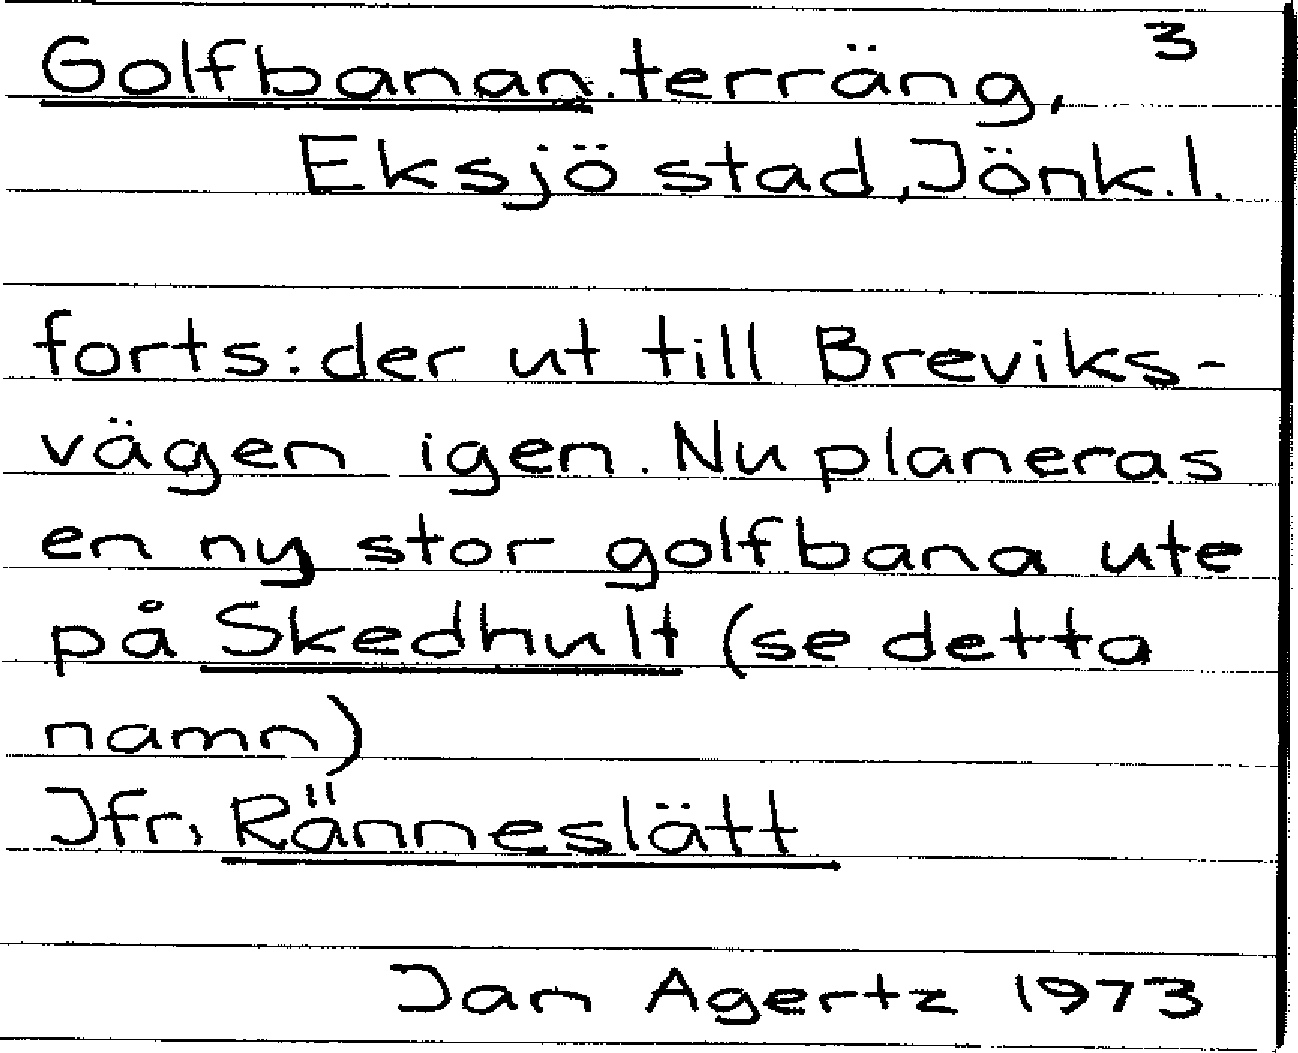 3
Golfbanan. terräng,
Eksjö stad, Jönk.l.
forts: der ut till Breviks-
vägen igen. Nu planeras
en ny stor golfbana ute
på Skedhult (se detta
namn)
Jfr, Ränneslätt
Jan Agertz 1973